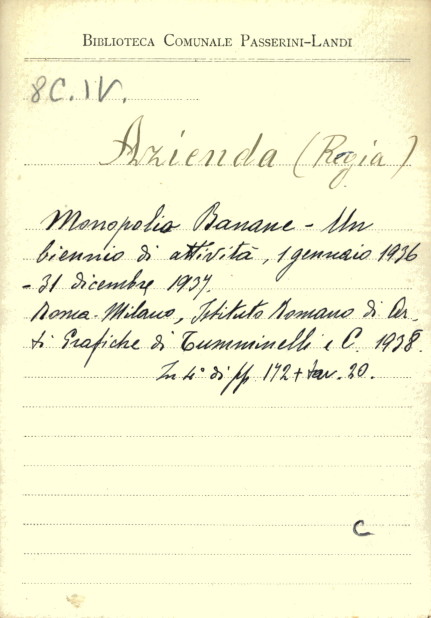 BIBLIOTECA COMUNALE PASSERINI-LANDI
8C.IV.
Azienda (Regia)
Monopolio Banane - Un
biennio di attività, 1 gennaio 1936
- 31 dicembre 1937.
Roma-Milano, Istituto Romano di Ar-
ti Grafiche di Tumminelli e C. 1938.
In 4° di pp. 172 + tav. 20.
C